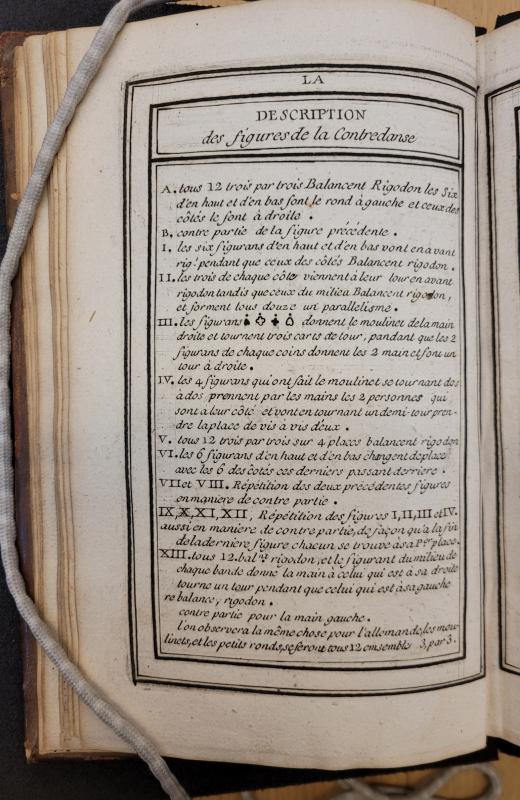 LA
DESCRIPTION
des figures de la Contredanse
A. tous 12 trois par trois Balancent Rigodon les Six
d'en haut et d'en bas font le rond à gauche et ceux des
côtés le font à droite.
B. contre partie de la figure précédente.
I. les six figurans d'en haut et d'en bas vont en avant
rig: pendant que ceux des côtés Balancent rigodon.
II. les trois de chaque côté viennent à leur tour en avant
rigodon tandis que ceux du milieu Balancent rigodon,
et forment tous douze un parallelisme.
III. les figurans donnent le moulinet de la main
droite et tournent trois carts de tour, pandant que les 2
figurans de chaque coins donnent les 2 main et font un
tour à droite.
IV. les 4 figurans qui ont fait le moulinet se tournant dos
à dos prennent par les mains les 2 personnes qui
sont a leur côté et vont en tournant un demi-tour pren-
dre la place de vis à vis d'eux.
V. tous 12 trois par trois sur 4 places balancent rigodon
VI. les 6 figurans d'en haut et d'en bas changent de place
avec les 6 des cotés ces derniers passant derriere.
VII et VIII. Répétition des deux précédentes figures
en maniere de contre partie.
IX, X, XI, XII, Répétition des figures I, II, III et IV.
aussi en maniere de contre partie, de façon qu'a la fin
de la derniere figure chacun se trouve à sa P.re place.
XIII. tous 12. bal.nt rigodon, et le figurant du milieu de
chaque bande donne la main à celui qui est à sa droite
tourne un tour pendant que celui qui est à sa gauche
re balance, rigodon.
contre partie pour la main gauche.
l'on observera la même chose pour l'allemande, les mou-
linets, et les petits ronds, se feront tous 12 emsemble 3, par 3.